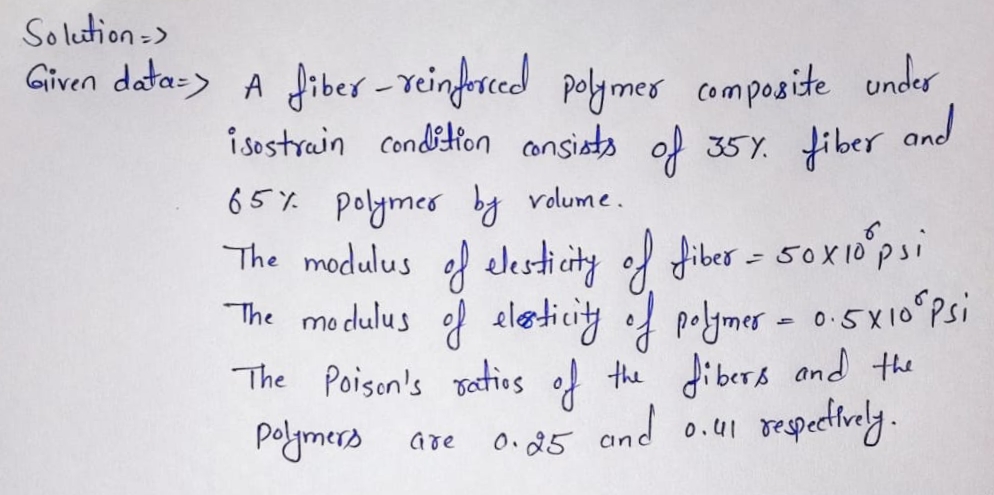 Solution=>
Given data=> A fiber-reinforced polymer composite under
isostrain condition consists of 35% fiber and
65% polymer by volume.
The modulus of elesticity of fiber = 50X10⁶psi
The modulus of elesticity of polymer = 0.5X10⁶Psi
The Poison's ratios of the fibers and the
polymers are 0.25 and 0.41 respectively.